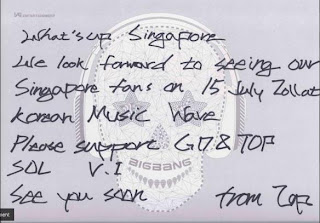 What's up Singapore
We look forward to seeing our
Singapore fans on 15 July 2011 at
Korean Music Wave
Please support GD & TOP
SOL V.I
BIGBANG
See you soon from Top